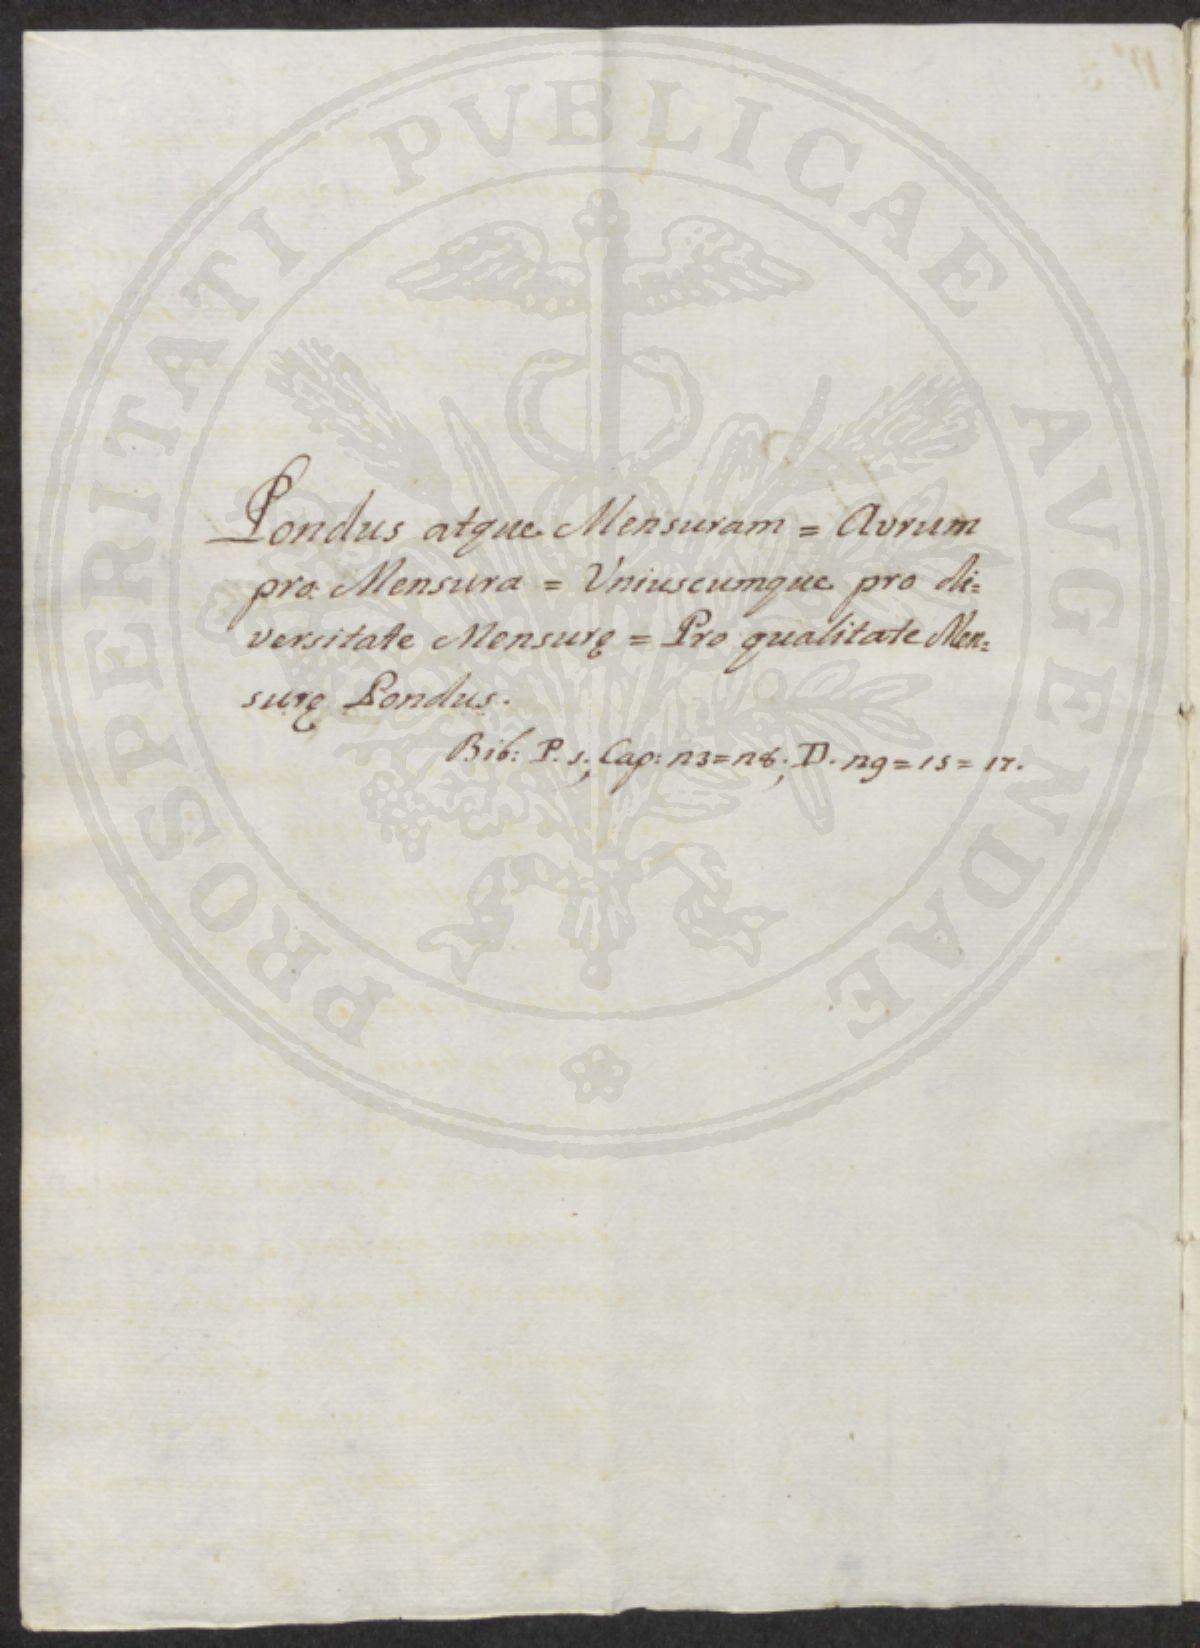 PROSPERITATI PVBLICAE AVGENDAE
Pondus atque Mensuram = Avrum
pro Mensura = Vniuscumque pro di=
versitate Mensurę = Pro qualitate Men=
surę Pondus.
Bib: P. s.; Cap: n3=n8; D. n9=15=17.